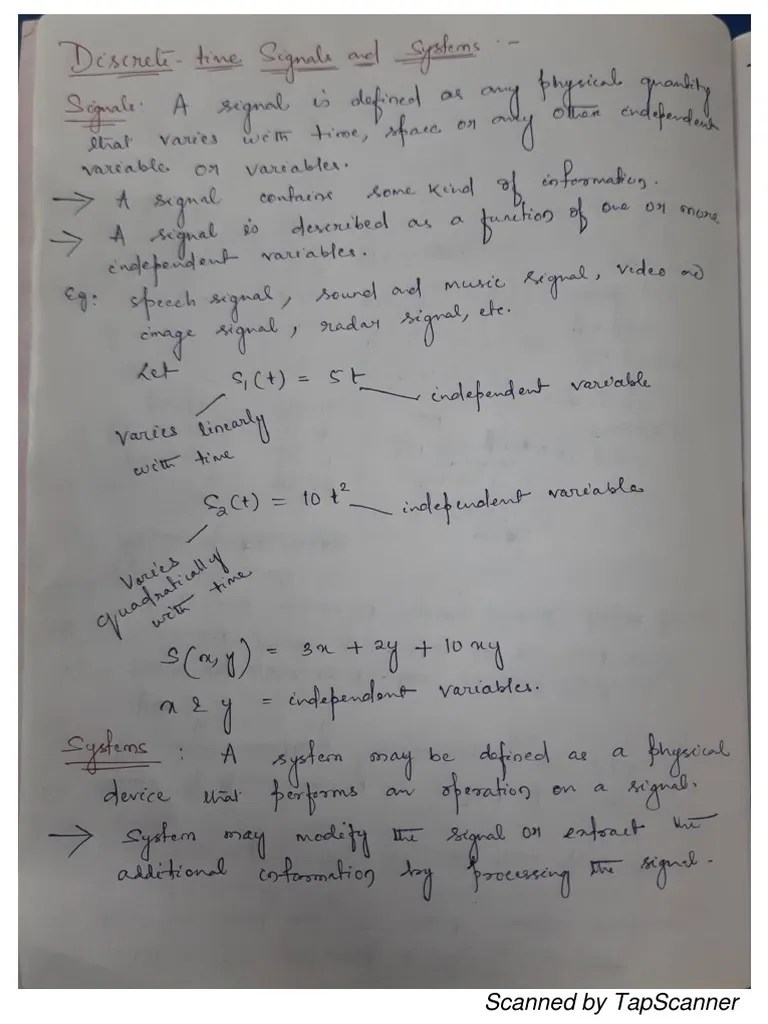 Discrete-time Signals and Systems :-
Signals: A signal is defined as any physical quantity
that varies with time, space or any other independent
variable or variables.
→ A signal contains some kind of information.
→ A signal is described as a function of one or more
independent variables.
Eg: speech signal, sound and music signal, video and
image signal, radar signal, etc.
Let S₁(t) = 5t independent variable
varies linearly
with time
S₂(t) = 10t² independent variable
Varies
quadratically
with time
S(x,y) = 3x + 2y + 10xy
x & y = independent variables.
Systems : A system may be defined as a physical
device that performs an operation on a signal.
→ System may modify the signal or extract the
additional information by processing the signal.
Scanned by TapScanner